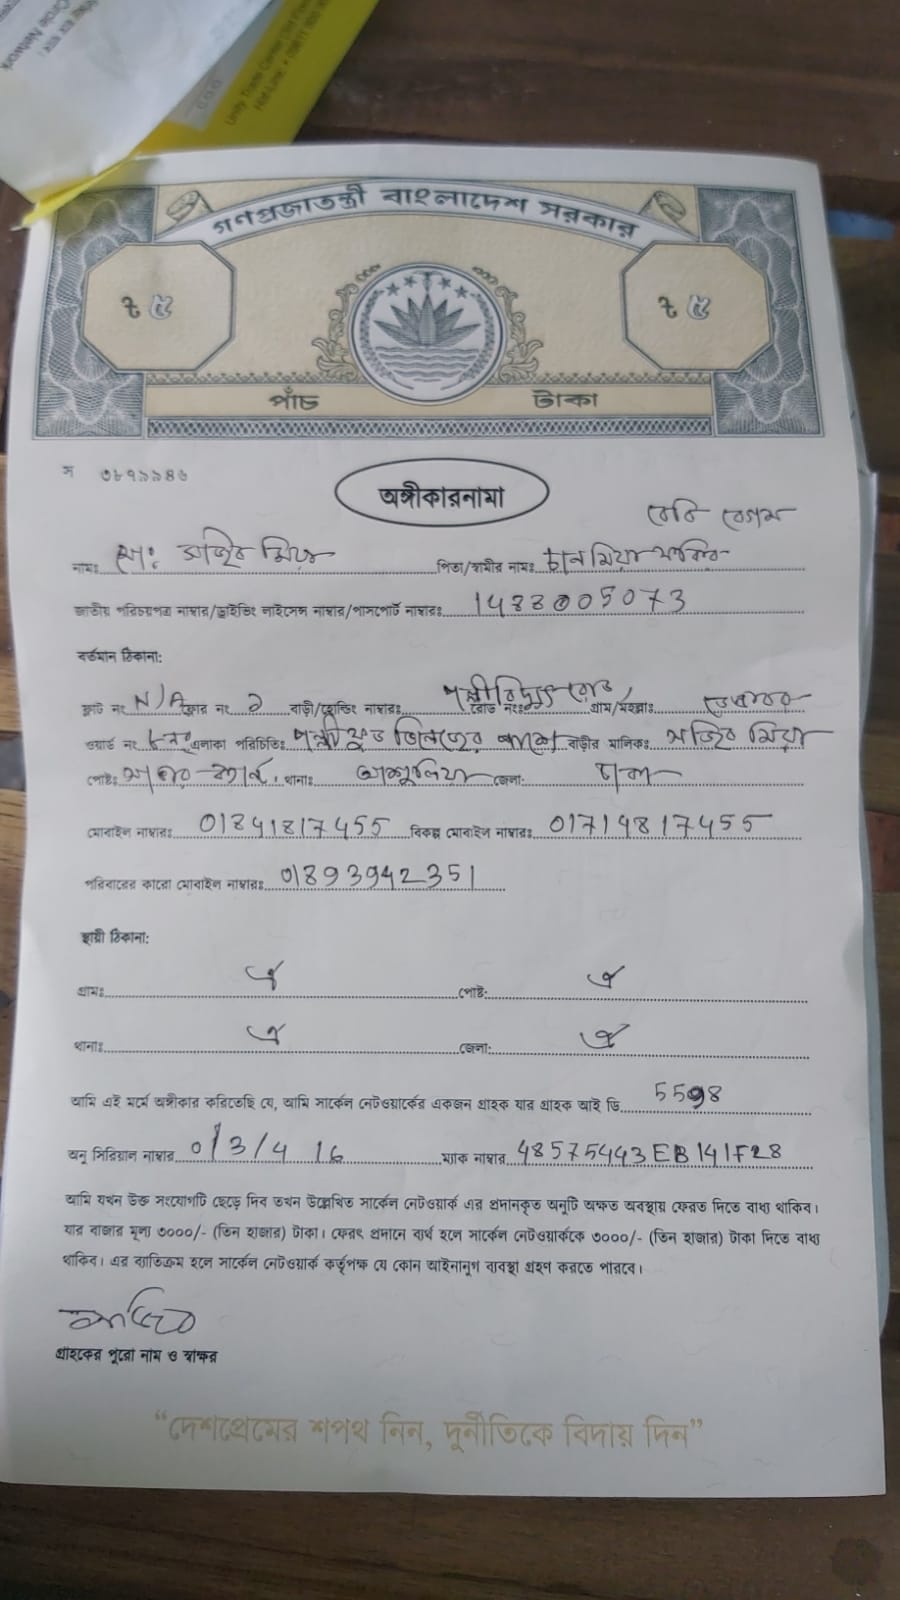 Unity Trade Center
গণপ্রজাতন্ত্রী বাংলাদেশ সরকার
৳ ৫ ৳ ৫
পাঁচ টাকা
স ৩৮৭৯৯৪৬
অঙ্গীকারনামা
বেবি বেগম
নামঃ মোঃ মজিব মিয়া পিতা/স্বামীর নামঃ চান মিয়া
জাতীয় পরিচয়পত্র নাম্বার/ড্রাইভিং লাইসেন্স নাম্বার/পাসপোর্ট নাম্বারঃ
বর্তমান ঠিকানা:
ফ্লাট নং N/A ফ্লোর নং ১ বাড়ী/হোল্ডিং নাম্বারঃ পল্লী বিদ্যুৎ রোড রোড নংঃ গ্রাম/মহল্লাঃ
ওয়ার্ড নং এলাকা পরিচিতিঃ বাড়ীর মালিকঃ মজিব মিয়া
পোষ্টঃ থানাঃ আশুলিয়া জেলা: ঢাকা
মোবাইল নাম্বারঃ 01841817455 বিকল্প মোবাইল নাম্বারঃ 01714817455
পরিবারের কারো মোবাইল নাম্বারঃ 01893942351
স্থায়ী ঠিকানা:
গ্রামঃ ঐ পোষ্ট: ঐ
থানাঃ ঐ জেলা: ঐ
আমি এই মর্মে অঙ্গীকার করিতেছি যে, আমি সার্কেল নেটওয়ার্কের একজন গ্রাহক যার গ্রাহক আই ডি 5598
অনু সিরিয়াল নাম্বার ম্যাক নাম্বার 48575443EB141F28
আমি যখন উক্ত সংযোগটি ছেড়ে দিব তখন উল্লেখিত সার্কেল নেটওয়ার্ক এর প্রদানকৃত অনুটি অক্ষত অবস্থায় ফেরত দিতে বাধ্য থাকিব।
যার বাজার মূল্য ৩০০০/- (তিন হাজার) টাকা। ফেরৎ প্রদানে ব্যর্থ হলে সার্কেল নেটওয়ার্ককে ৩০০০/- (তিন হাজার) টাকা দিতে বাধ্য
থাকিব। এর ব্যতিক্রম হলে সার্কেল নেটওয়ার্ক কর্তৃপক্ষ যে কোন আইনানুগ ব্যবস্থা গ্রহণ করতে পারবে।
গ্রাহকের পুরো নাম ও স্বাক্ষর
“দেশপ্রেমের শপথ নিন, দুর্নীতিকে বিদায় দিন”